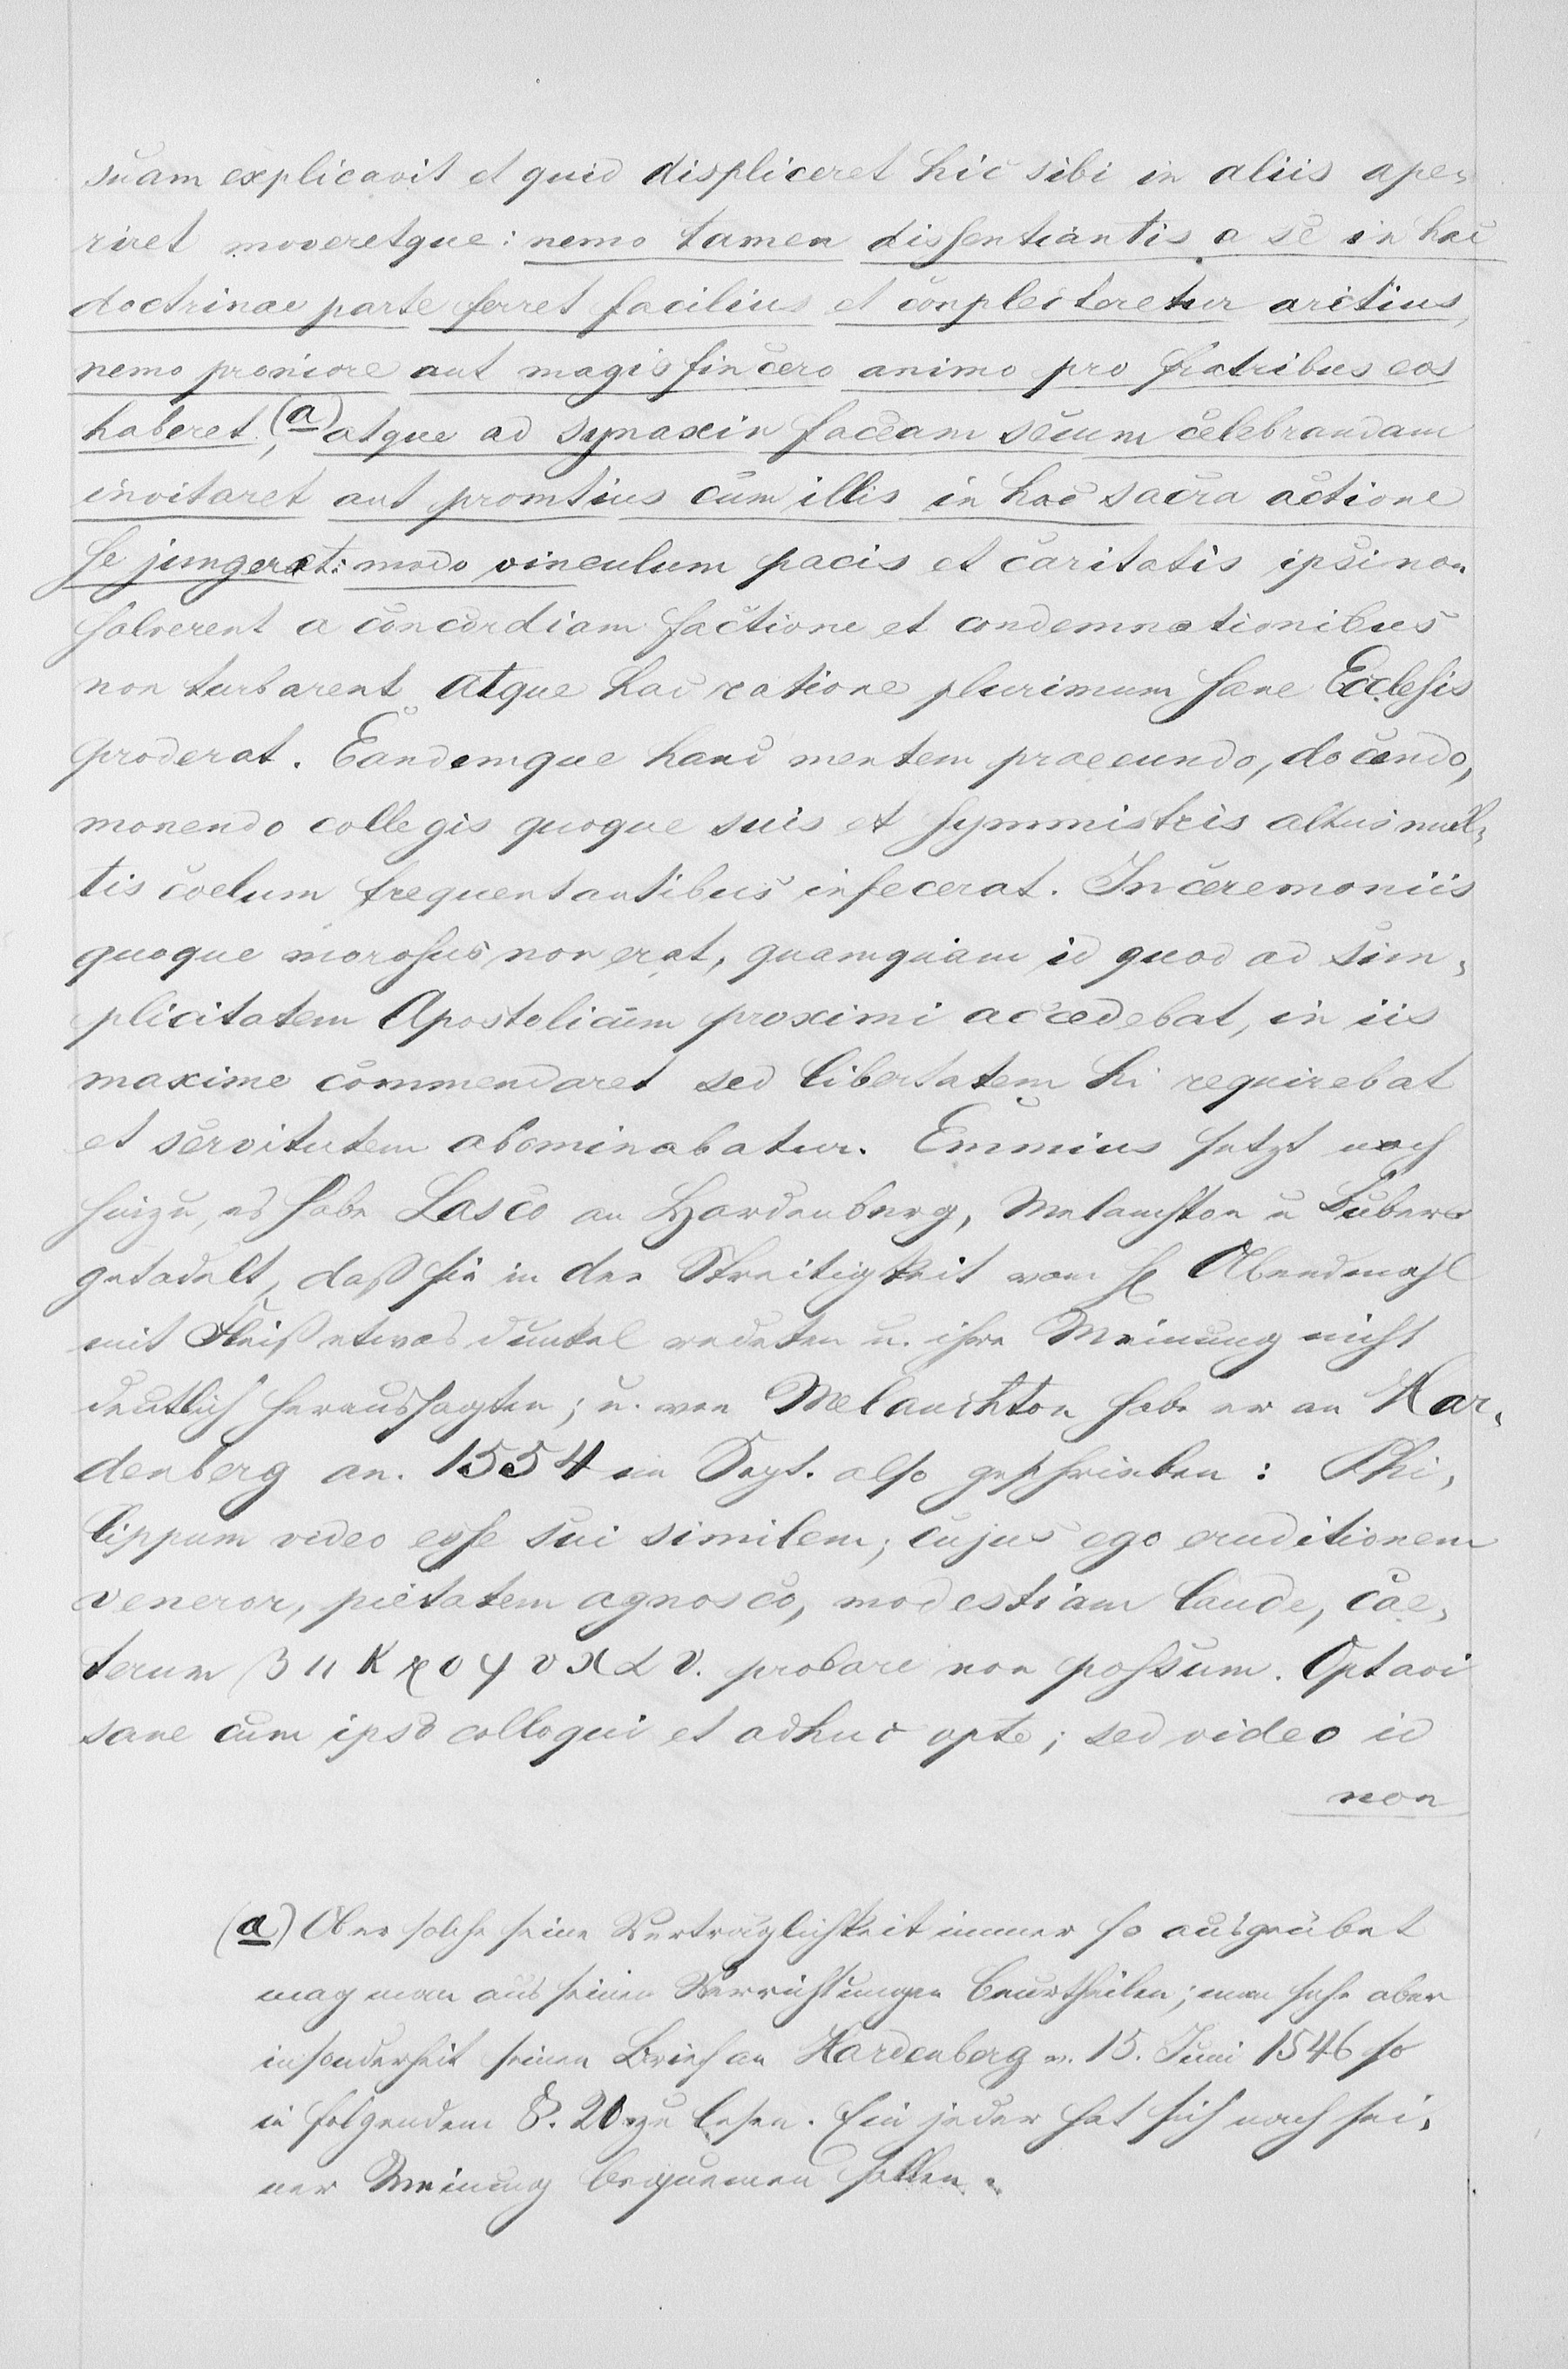 suam explicavit et quid displiceret hic sibi in aliis ape-
riret moveretque: nemo tamen dissentiantis a se in hac
doctrinae parte ferret facilius et conplecteretur arctius,
nemo proniore aut magis sincero animo pro fratribus eos
haberet, (a) atque ad synaxin saceam secum celebrandam
invitaret aut promtius cum illis in hac sacra actione
se jungeret: modo vinculum pacis et caritatis ipsi non
solverent a concordiam factione et condemnationibus
non turbarent atque hac ratione plurimum sane Ecclesis
proderat. Eandemque hanc mentem praeeundo, docendo,
monendo collegis quoque suis et symmistris altius mul-
tis coetum frequentantibus infecerat. In ceremoniis
quoque morosus non erat, quamquam id quod ad sim-
plicitatem Apostolicum proximi accedebat, in iis
maxime commendaret sed libertatem hi requirebat
et servitutem abominabatur. Emmius setzt noch
hinzu, es habe Lasco an Hardenberg, Melanchton u Buberr
getadelt, daß sie in der Streitigkeit vom H Abendmahl
mit Fleiß etwas dunkel redeten u. ihre Meinung nicht
deutlich heraussagten; u. von Melanchton habe er an Har-
denberg an. 1554 im Sept. also geschrieben: Phi-
lippum video esse sui similem; cujus ego eruditionem
veneror, pietatem agnosco, modestiam laude, cae-
terum probare non possum. Optavi
sane cum ipso colloqui et adhuc opto; sed video id
non
(a) Ob er solche seine Verträglichkeit immer so ausgeübet
mag man aus seinen Verrichtungen beurtheilen; man sehe aber
insonderheit seinen Brief an Hardenberg v. 15. Juni 1546 so
in folgendem §. 20 zu lesen. Ein jeder hat sich nach sei-
ner Meinung bequemen sollen.